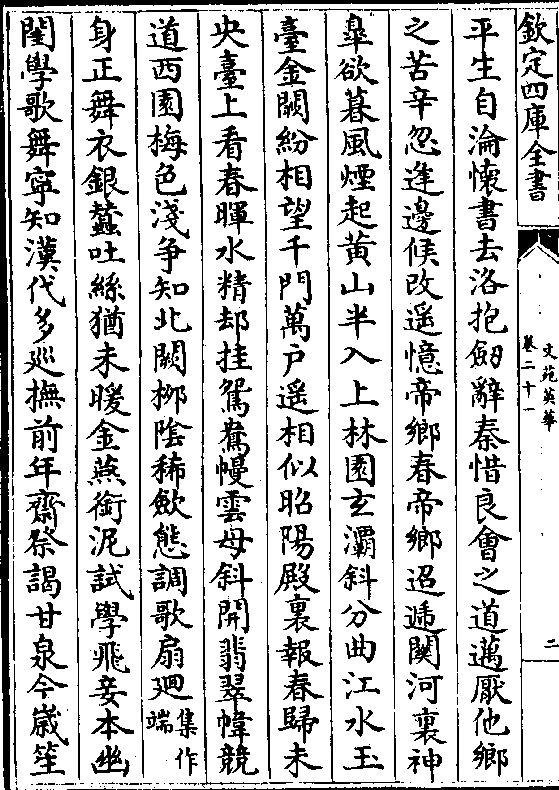 欽定四庫全書
文苑英華
卷二十一
二
平生自淪懷書去洛抱劒辭秦惜良會之道邁厭他鄉
之苦辛忽逢邊候改遥憶帝鄉春帝鄉迢遞關河裏神
臯欲暮風煙起黄山半入上林園玄灞斜分曲江水玉
臺金闕紛相望千門萬户遥相似昭陽殿裏報春歸未
央臺上看春暉水精却挂鴛鴦幔雲母斜開翡翠幃競
道西園梅色淺争知北闕栁陰稀歛態調歌扇廻集作端
身正舞衣銀蠶吐絲猶未暖金燕銜泥試學飛妾本幽
閨學歌舞寧知漢代多巡撫前年齋祭謁甘泉今嵗笙